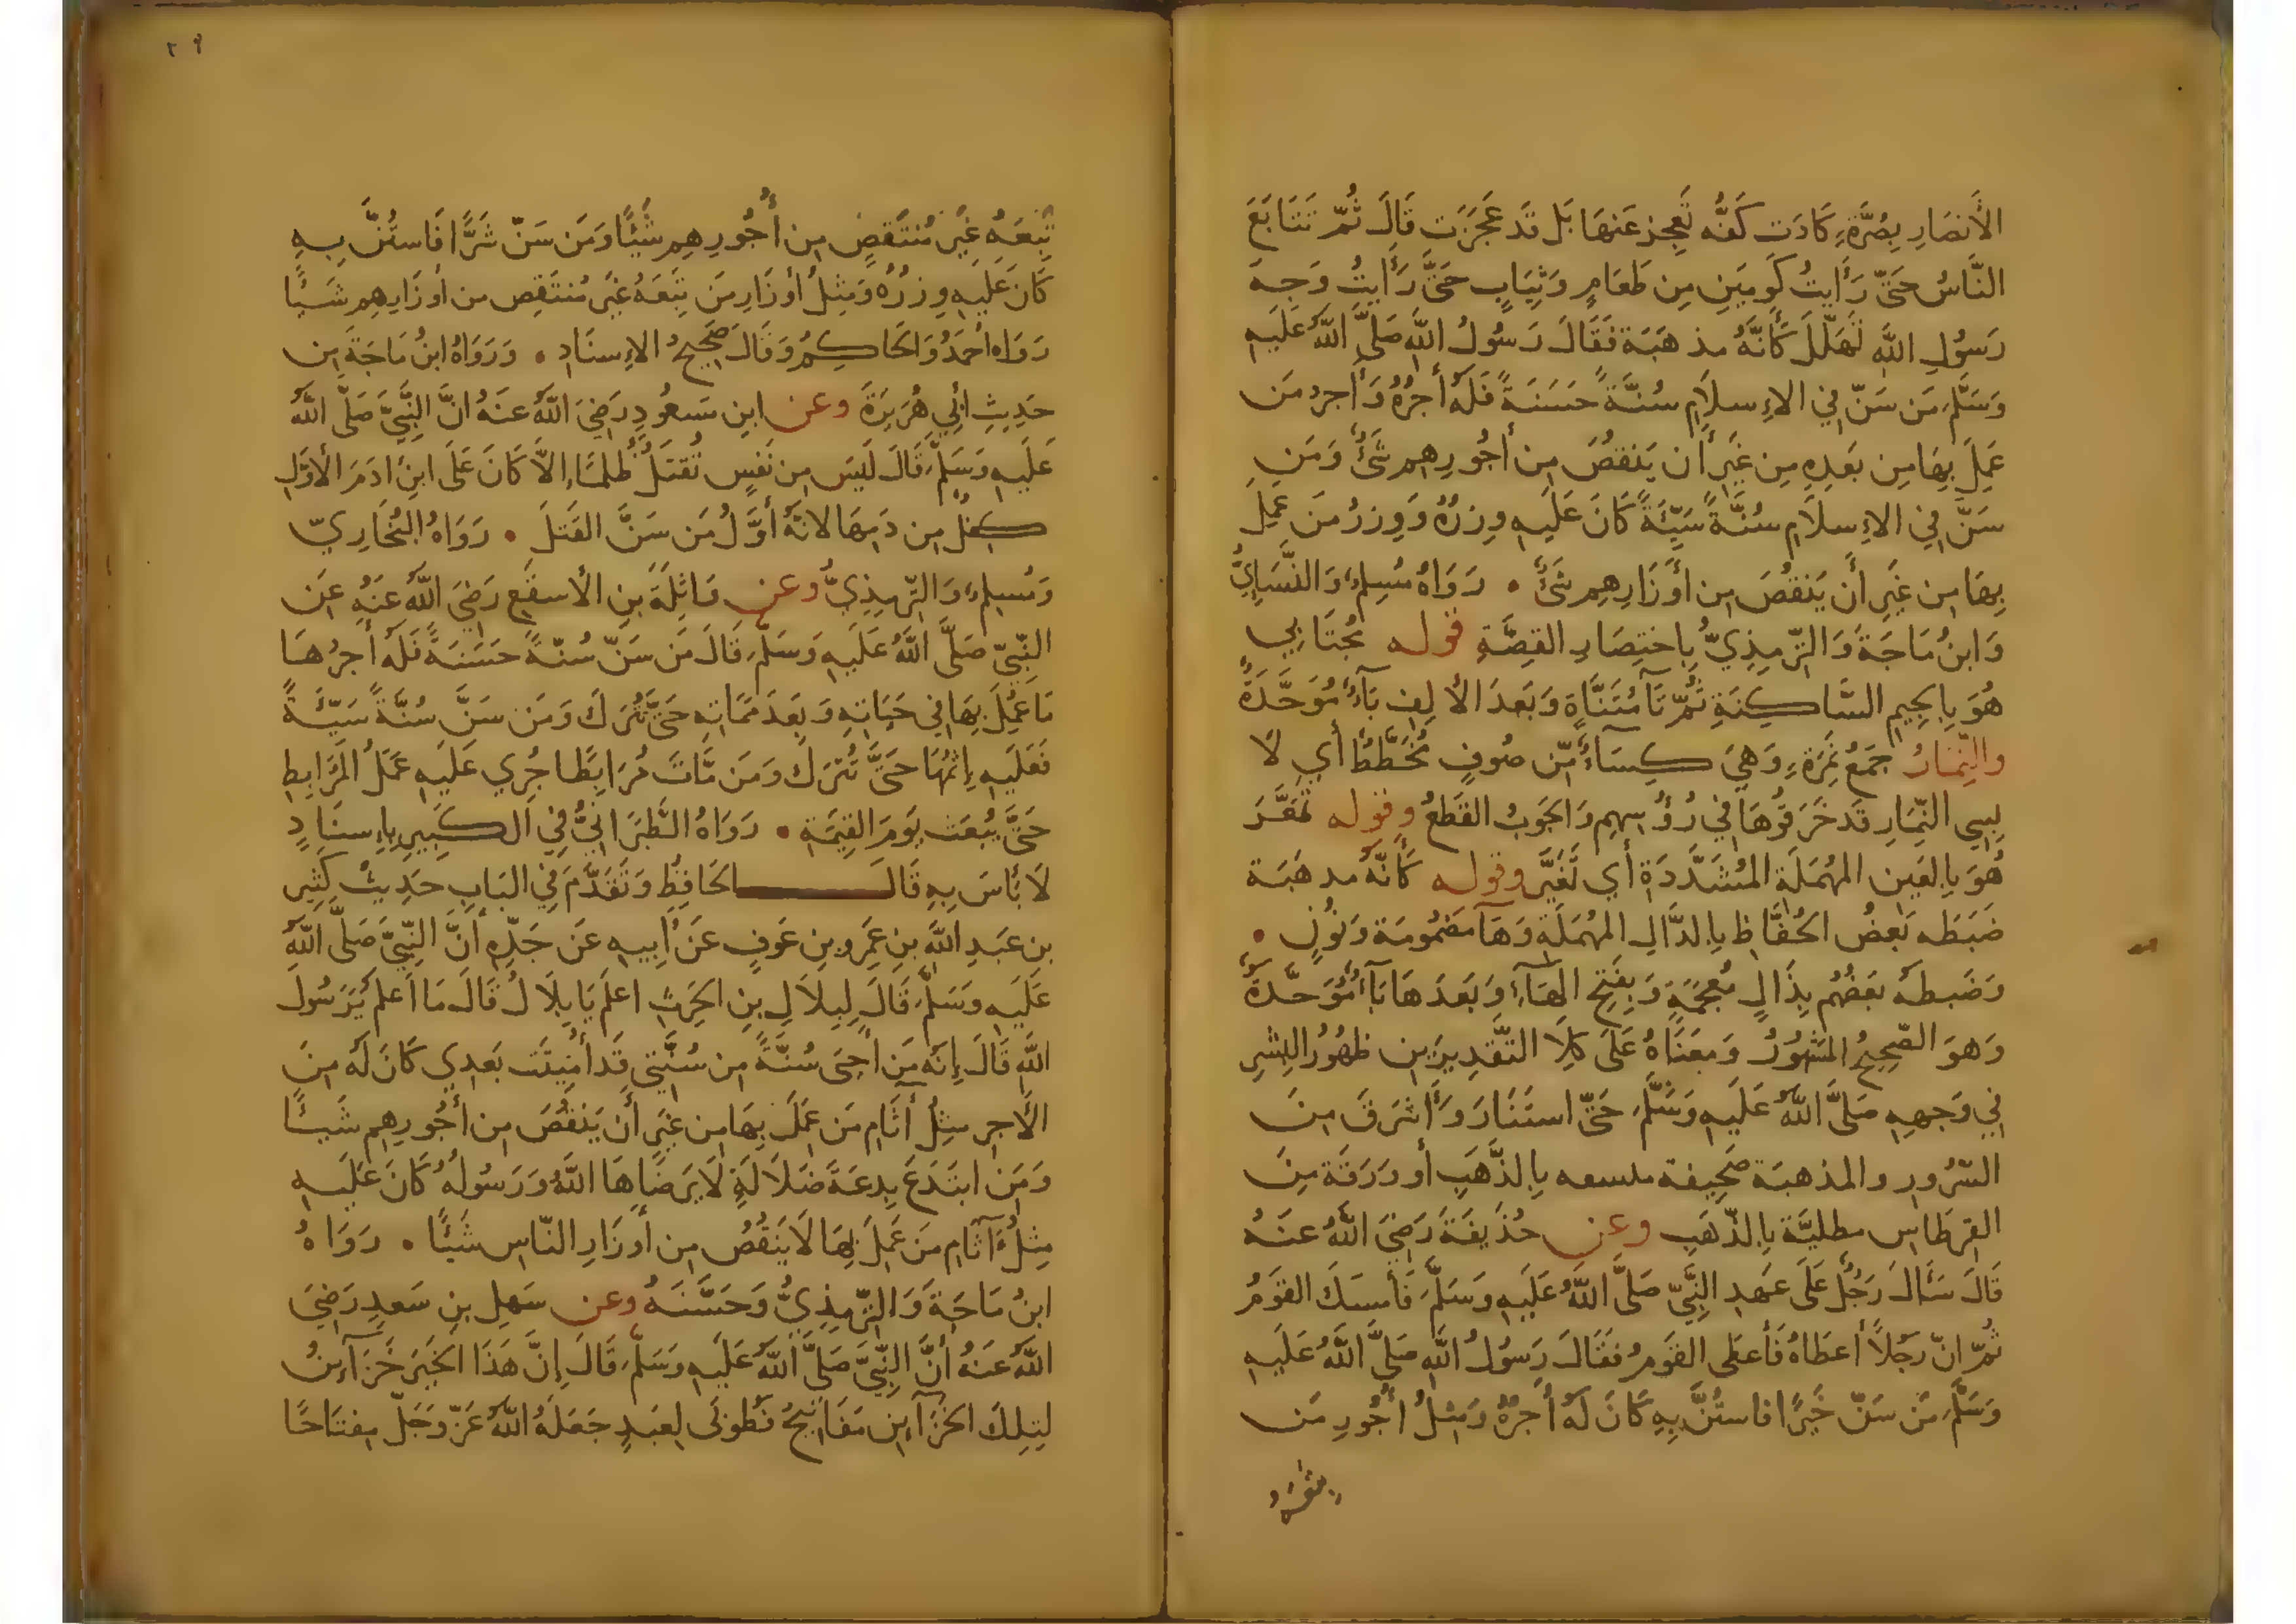 الأَنصَارِ بِصُرَّةٍ كَادَت كَفُّه تَعجِز عَنهَا بَل قَد عَجَزَت قَالَ ثُمّ تَتَابَعَ
النَّاسُ حَتَّى رَأَيتُ كَومَينِ مِن طَعَامٍ وَثِيَابٍ حَتَّى رَأَيتُ وَجهَ
رَسُولِ اللَّهِ تَهَلّلَ كَأَنَّهُ مذهبَة فَقَالَ رَسُولُ اللَّهِ صَلَّى اللَّهُ عَلَيهِ
وَسَلَّمَ مَن سَنّ فِي الإِسلَامِ سُنَّةً حَسَنَةً فَلَهُ أَجرُهُ وَأَجرُ مَن
عَمِلَ بِهَا مِن بَعدِهِ مِن غَيرِ أَن يَنقُصَ مِن أُجُورِهِم شَئٌ وَمَن
سَنَّ فِي الإِسلَامِ سُنَّةً سَيِّئَةً كَانَ عَلَيهِ وِزرُهُ وَوِزرُ مَن عَمِلَ
بِهَا مِن غَيرِ أَن يَنقُصَ مِن أَوزَارِهِم شَئٌ • رَوَاهُ مُسلِمٌ وَالنَّسَايِيُّ
وَابنُ مَاجَةَ وَالتِّرمِذِيُّ بِاختِصَارِ القِصَّةِ قوله مُجتَابِي
هُوَ بِالجِيمِ السَّاكِنَةِ ثُمّ تَآ مُثَنَّاةٍ وَبَعدَ الأَلِفِ بَآءٌ مُوَحَّدَةٌ
والنِّمَارُ جَمعُ نَمِرَةٍ وَهِيَ كِسَآءٌ مِّن صُوفٍ مُخَطَّطٌ أَي لَا
بِسِي النِّمَارِ قَد خَرَقُوهَا فِي رُؤُسِهِم وَالجَوبُ القَطعُ وقوله تَمَعَّرَ
هُوَ بِالعَينِ المُهمَلَةِ المُشَدَّدَةِ أَي تَغَيَّرَ وقوله كَأَنَّهُ مدهبَة
ضَبَطَه بَعضُ الحُفَّاظِ بِالدَّالِ المُهمَلَةِ وَهَآ مَضمُومَة وَنُونٍ •
وَضَبطهُ بَعضُهُم بِذَالٍ مُعجَمَةٍ وَبِفَتحِ الهَآءِ وَبَعدَهَا بَآءٌ مُوَحَّدَةٌ
وَهوَ الصَّحِيحُ المَشهُورُ وَمَعنَاهُ عَلَى كِلَا التَّقدِيرَينِ ظهُورُ البِشرِ
فِي وَجهِهِ صَلَّى اللَّهُ عَلَيهِ وَسَلَّمَ حَتّى استَنَارَ وَأَشرَقَ مِنَ
السُّرُورِ والمذهبَة صَحِيفة بِالذَّهَبِ أَو وَرَقَة مِنَ
القِرطَاسِ مطليَّة بِالذَّهَبِ وعن حُذَيفَةَ رَضِيَ اللَّهُ عنَهُ
قَالَ سَأَلَ رَجُلٌ عَلَى عَهدِ النَّبِيِّ صَلَّى اللَّهُ عَلَيهِ وَسَلَّمَ فَأَمسَكَ القَومُ
ثُمّ انّ رَجُلاً أَعطَاهُ فَأَعطَى القَومُ فَقَالَ رَسُولُ اللَّهِ صَلَّى اللَّهُ عَلَيهِ
وَسَلَّمَ مَن سَنّ خَيرًا فاستُنَّ بِهِ كَانَ لَهُ أَجرُهُ وَمِثلُ أُجُورِ مَن
٢٩
تَبِعَهُ غَيرَ مُنتَقِصٍ مِن أُجُورِهِم شَيئًا وَمَن سَنّ شَرًّا فَاستُنَّ بِهِ
كَانَ عَلَيهِ وِزرُهُ وَمِثلُ أَوزَارِ مَن تَبِعَهُ غَيرَ مُنتَقِص من أَوزَارِهِم شَيئًا
رَوَاه أَحمَدُ وَالحَاكِمُ وَقَالَ صَحِيحُ الإِسنَادِ • وَرَوَاهُ ابنُ مَاجَةَ مِن
حَدِيثِ أَبِي هُرَيرَةَ وعن ابنِ مَسعُودٍ رَضِيَ اللَّهُ عنَهُ انَّ النَّبِيَّ صَلَّى اللَّهُ
عَلَيهِ وَسَلَّمَ قَالَ لَيسَ مِن نَفسٍ تُقتَلُ ظُلمًا إِلاَّ كَانَ عَلَى ابنِ ادَمَ الأَوَّلِ
كِفلٌ مِن دَمِهَا لانَّهُ أَوَّلُ مَن سَنَّ القَتلَ • رَوَاهُ البُخَارِيّ
وَمُسلِمٌ وَالتِّرمِذِيُّ وعن وَاثِلَةَ بنِ الأَسقَعِ رَضِيَ اللَّهُ عَنهُ عَن
النَّبِيِّ صَلَّى اللَّهُ عَلَيهِ وَسَلَّمَ قَالَ مَن سَنّ سُنّةً حَسَنَةً فَلَهُ أَجرُهَا
مَا عُمِلَ بِهَا فِي حَيَاتِهِ وَبَعدَ مَمَاتِهِ حَتَّى تُترَكَ وَمَن سَنَّ سُنَّةً سَيّئَةً
فَعَلَيهِ إِثمُهَا حَتَّى تُترَكَ وَمَن مَّاتَ مُرَابِطًا جُرِي عَلَيهِ عَمَلُ المُرَابِطِ
حَتَّى يُبعَث يَومَ القِيمَةِ • رَوَاهُ الطَّبَرَانِيُّ فِي الكَبِيرِ بِإِسنَادٍ
لَا بَأسَ بِهِ قَالَ الحَافِظُ وَتَقَدَّمَ فِي البَابِ حَدِيثُ كَثِيرِ
بن عَبدِ اللَّهِ بنِ عَمرِو بنِ عَوفٍ عَن أَبِيهِ عَن جَدِّهِ أَنَّ النَّبِيَّ صَلَّى اللَّهُ
عَلَيهِ وَسَلَّمَ قَالَ لِبِلاَلِ بنِ الحَرِثِ اعلَم يَا بِلَالُ قَالَ مَا أَعلم يَرَسُولَ
اللَّهِ قَالَ إِنَّهُ مَن أَحيَى سُنَّةً مِن سُنَّتِي قَد أُمِيتَت بَعدِي كَانَ لَهُ مِنَ
الأَجرِ مِثلُ آثَامِ مَن عَمِلَ بِهَا مِن غَيرِ أَن يَنقُصَ مِن أُجُورِهِم شَيئًا
وَمَن ابتَدَعَ بِدعَةَ ضَلَالَةٍ لَا يَرضَاهَا اللَّهُ وَرَسُولُهُ كَانَ عَلَيهِ
مِثلُ آثَامِ مَن عَمِلَ بِهَا لَا يَنقُصُ مِن أَوزَارِ النَّاسِ شَيئًا • رَوَاهُ
ابنُ مَاجَةَ وَالتِّرمِذِيُّ وَحَسَّنَهُ وعن سَهلِ بنِ سَعدٍ رَضِيَ
اللَّهُ عَنهُ أَنَّ النَّبِيَّ صَلَّى اللَّهُ عَلَيهِ وَسَلَّمَ قَالَ إِنَّ هَذَا الخَيرَ خَزَآئِنُ
لِتِلكَ الخَزَآئِنِ مَفَاتِيحُ فَطُوبَى لِعَبدٍ جَعَلَهُ اللَّهُ عَزَّ وَجَلَّ مِفتَاحًا